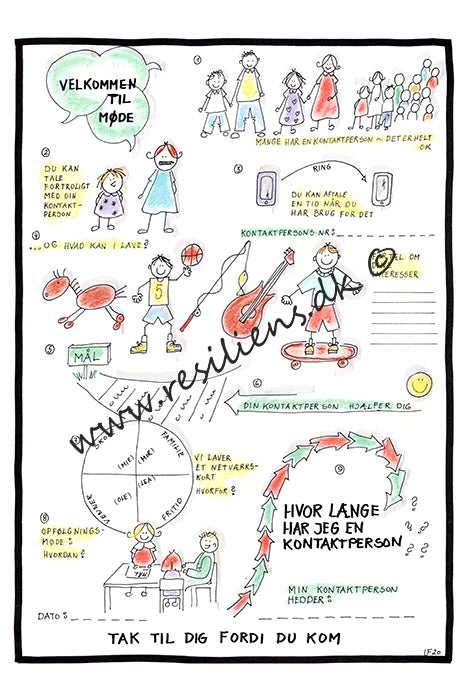 VELKOMMEN
TIL
MØDE
1
MANGE HAR EN KONTAKTPERSON ~ DET ER HELT
OK
2
DU KAN
TALE
FORTROLIGT
MED DIN
KONTAKT-
PERSON
3
RING
DU KAN AFTALE
EN TID NÅR DU
HAR BRUG FOR DET
KONTAKTPERSONS NR:
4
...OG HVAD KAN I LAVE?
5
OM
INTERESSER
5
MÅL
6
DIN KONTAKTPERSON HJÆLPER DIG
SKOLE
FAMILIE
(MIE)
(MOR)
(OLE)
(LEA)
VENNER
FRITID
VI LAVER
ET NETVÆRKS-
KORT
HVORFOR?
8
OPFØLGNINGS-
MØDE?
HVORDAN?
9
HVOR LÆNGE
HAR JEG EN
KONTAKTPERSON
? ? ? ? ?
MIN KONTAKTPERSON
HEDDER:
DATO:
TAK TIL DIG FORDI DU KOM
LF20
www.resiliens.dk ©